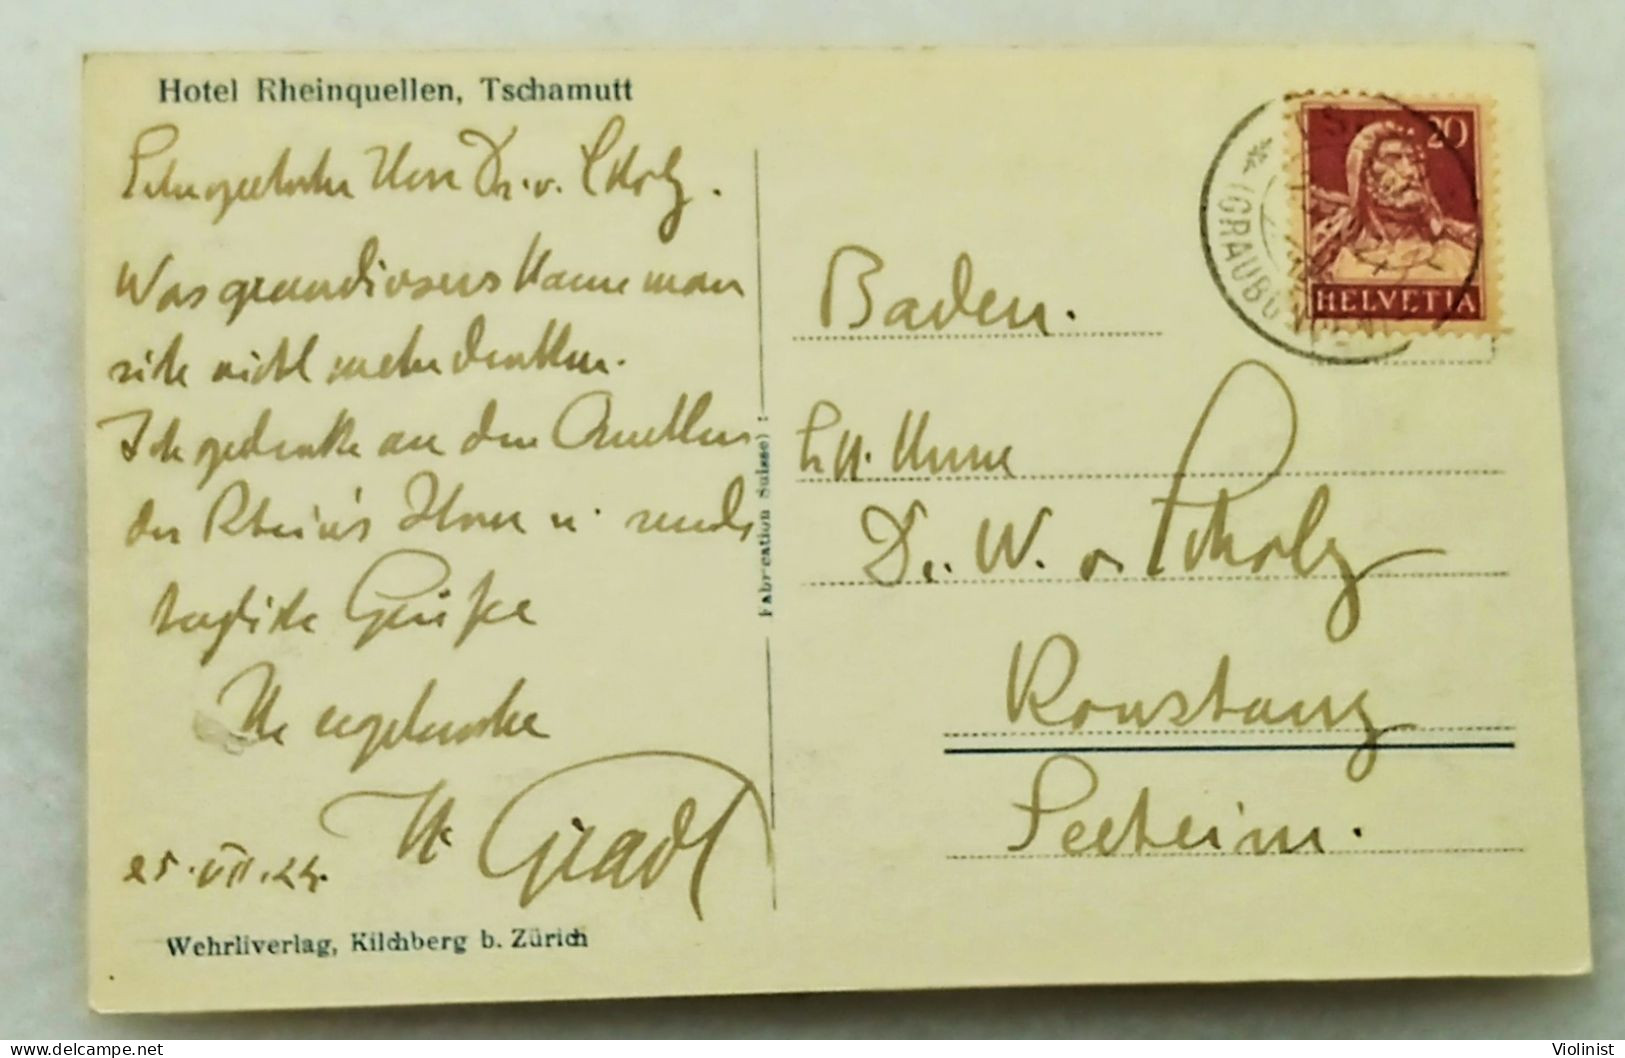 Hotel Rheinquellen, Tschamutt
Sehr geehrter Herr Dr. v. Scholz.
Was grandioseres kann man
sich nicht mehr denken.
Ich gedenke an den Quellen
des Rheins Ihrer u. sende
Grüße
Ihr ergebenster
Gradl
25.VII.24.
Wehrliverlag, Kilchberg b. Zürich
Fabrication Suisse
20
HELVETIA
(GRAUBÜNDEN)
Baden.
Dr. W. v. Scholz
Konstanz
Seeheim.
Delcampe.net
Violinist